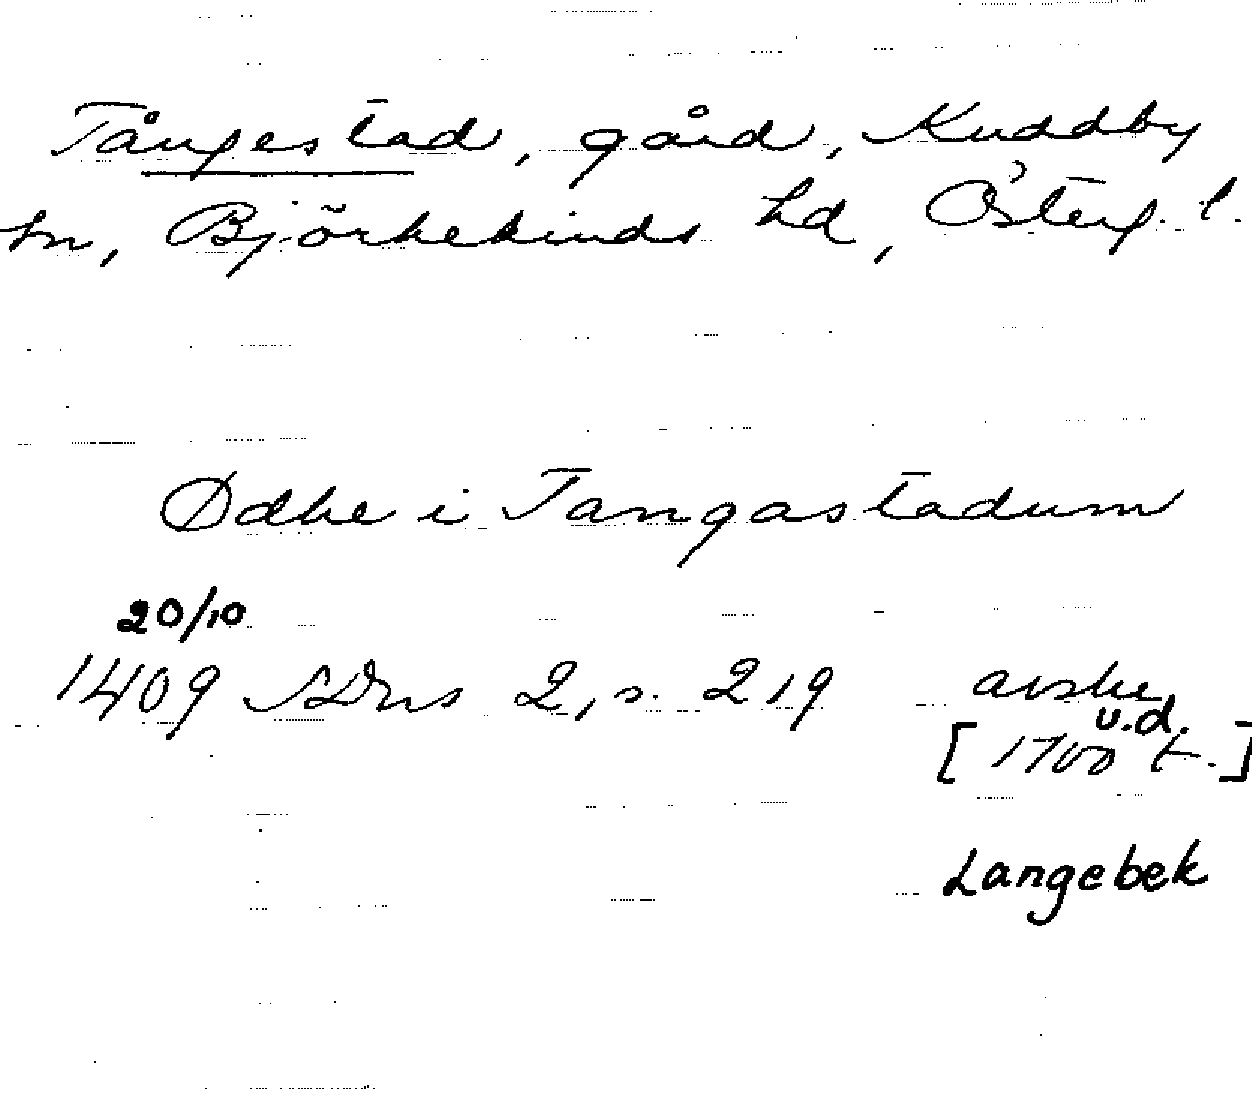 Tångestad, gård, Kuddby
sn, Björkekinds hd, Österg. l.
Ødke i Tangastadum
20/10
1409 SDns 2, s. 219 avskr.
u.d.
[1700 t.]
Langebek